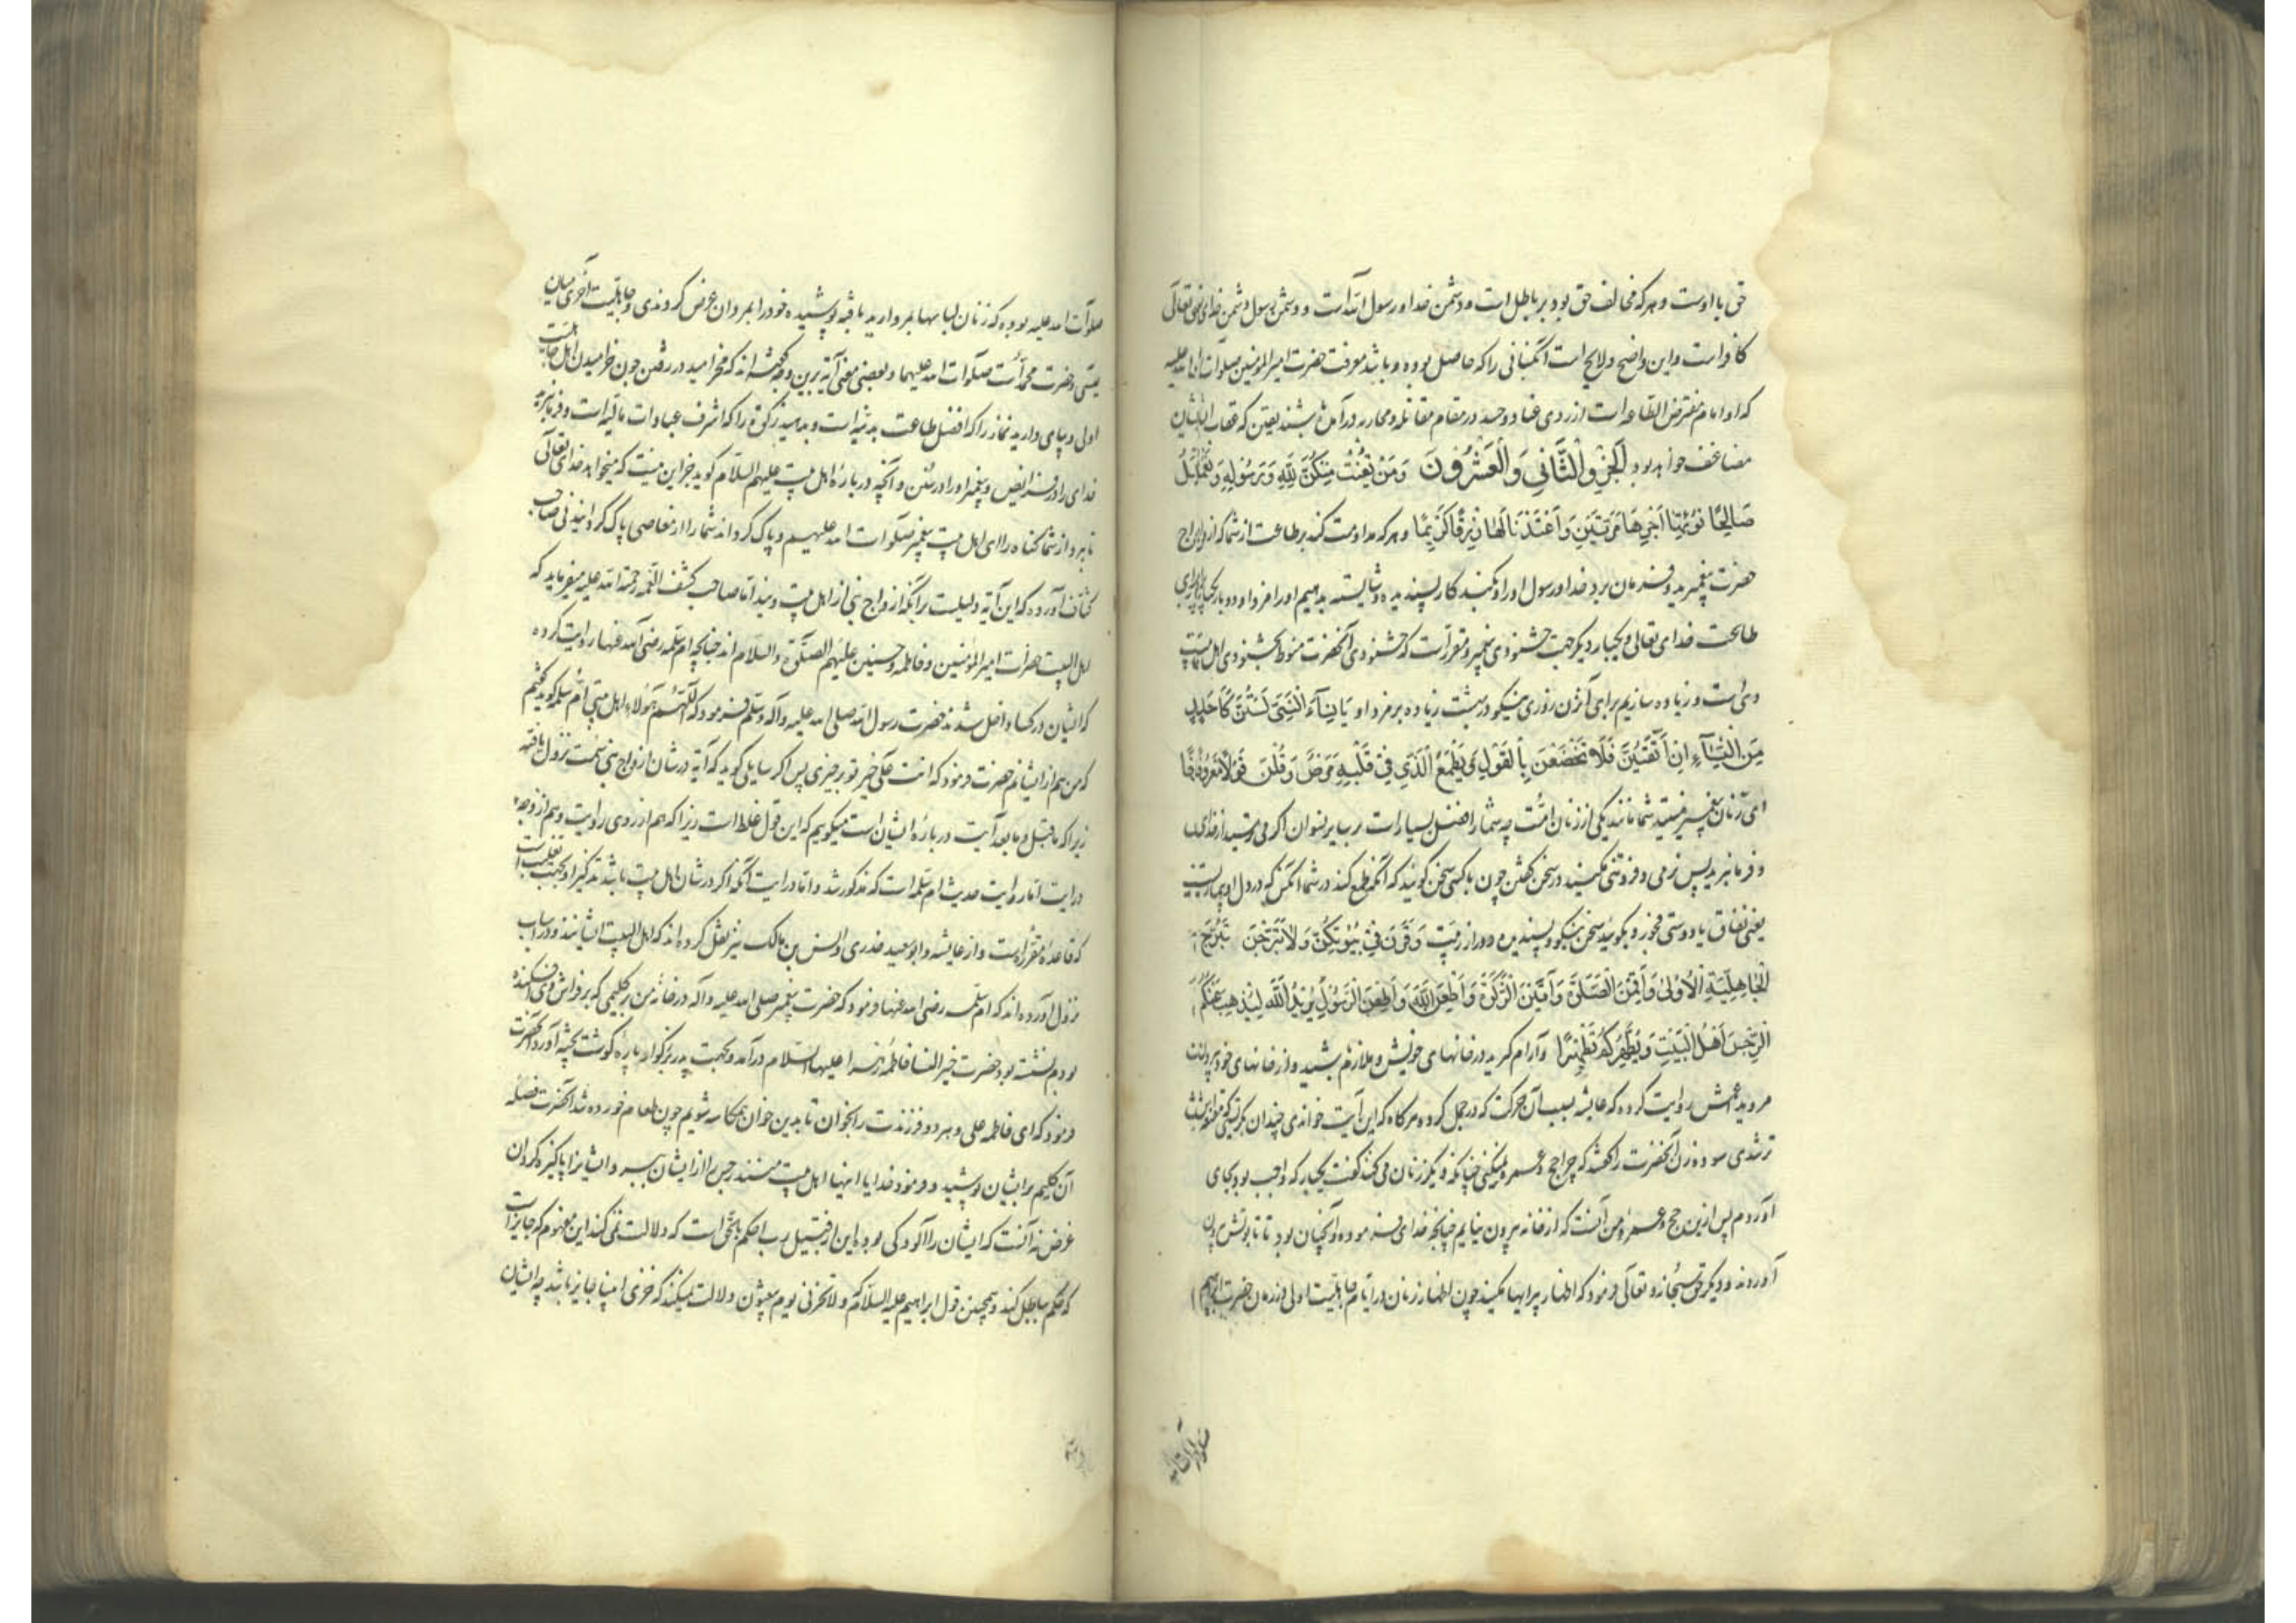 حق با اوست و هر که مخالف حق بود بر باطل است و دشمن خدا و رسول الله است و دشمن رسول دشمن خدای تعالی
کافر است و این واضح و لایح است آنکسانی را که حاصل بوده و باشد معرفت حضرت امیر المؤمنین صلوات الله علیه
که او امام مفترض الطاعه است از روی عناد و حسد در مقام مقاتله و محاربه در آمده باشند یقین که عقاب ایشان
مضاعف خواهد بود الجزو الثانی والعشرون وَمَنْ يَقْنُتْ مِنْكُنَّ لِلَّهِ وَرَسُولِهِ وَتَعْمَلْ
صَالِحًا نُؤْتِهَا أَجْرَهَا مَرَّتَيْنِ وَأَعْتَدْنَا لَهَا رِزْقًا كَرِيمًا و هر که مداومت کند بر طاعت از شما که ازواج
حضرت پیغمبرید و فرمان برد خدا و رسول او را و بکند کار پسندیده و شایسته بدهیم او را مزد او دو بار یکبار برای
طاعت خدای تعالی و یکبار دیگر جهت خشنودی پیغمبر و مقرر است که خشنودی آنحضرت منوط بخشنودی اهل بیت
وی است و زیاده سازیم برای آنزن روزی نیکو در بهشت زیاده بر مزد او يَا نِسَاءَ النَّبِيِّ لَسْتُنَّ كَأَحَدٍ
مِنَ النِّسَاءِ إِنِ اتَّقَيْتُنَّ فَلَا تَخْضَعْنَ بِالْقَوْلِ فَيَطْمَعَ الَّذِي فِي قَلْبِهِ مَرَضٌ وَقُلْنَ قَوْلًا مَعْرُوفًا
ای زنان پیغمبر نیستید شما مانند یکی از زنان امت چه شما را فضل بسیار است بر سایر نسوان اگر می ترسید از خدای
و فرمانبرید پس نرمی و فروتنی مکنید در سخن گفتن چون با کسی سخن گوئید که آنگه طمع کند در شما آنکس که در دل او بیماریست
یعنی نفاق یا دوستی فجور و بگوئید سخن نیکو و پسندیده دور از ریبت وَقَرْنَ فِي بُيُوتِكُنَّ وَلَا تَبَرَّجْنَ تَبَرُّجَ
الْجَاهِلِيَّةِ الْأُولَىٰ وَأَقِمْنَ الصَّلَوٰةَ وَآتِينَ الزَّكَوٰةَ وَأَطِعْنَ اللَّهَ وَأَطِعْنَ الرَّسُولَ يُرِيدُ اللَّهُ لِيُذْهِبَ عَنْكُمُ
الرِّجْسَ أَهْلَ الْبَيْتِ وَيُطَهِّرَكُمْ تَطْهِيرًا و آرام گیرید در خانهای خویش و ملازم باشید و از خانهای خود بیرون
مروید اعمش روایت کرده که عایشه بسبب آن حرکت که در جمل کرده هرگاه که این آیت خواندی چندان بگریستی که
تر شدی سوده زن آنحضرت را گفتند که چرا حج و عمره نمیکنی چنانکه دیگر زنان می کنند گفت یکبار که واجب بود بجای
آوردم پس ازین حج و عمره من آنست که از خانه بیرون نیایم چنانچه خدای فرموده و آنچنان بود تا تابوتش بیرون
آوردند و دیگر حق سبحانه و تعالی فرمود که اظهار پیرایها مکنید چون اظهار زنان در ایام جاهلیت اولی در زمان حضرت ابراهیم
صلوات الله علیه بوده که زنان لباسها بمروارید بافته پوشیده خود را بمردان عرض کردندی و جاهلیت اخری میان
عیسی و حضرت محمد است صلوات الله علیهما و بعضی معنی آیه برین وجه گفته اند که مخرامید در رفتن چون خرامیدن اهل جاهلیت
اولی و بپای دارید نماز را که افضل طاعت بدنیه است و بدهید زکوة را که اشرف عبادات مالیه است و فرمانبرید
خدای را در فرایض و پیغمبر او را در سنن و آنچه در باره اهل بیت علیهم السلام گوید جز این نیست که میخواهد خدای تعالی
تا ببرد از شما گناه را ای اهل بیت پیغمبر صلوات الله علیهم و پاک گرداند شما را از معاصی پاک گردانیدنی صاحب
کشاف آورده که این آیه دلیلست بر آنکه ازواج نبی از اهل بیت ویند اما صاحب کشف الغمه رحمة الله علیه میفرماید که
اهل البیت حضرت امیر المؤمنین و فاطمه و حسنین علیهم الصلوة والسلام اند چنانچه ام سلمه رضی الله عنها روایت کرده
که ایشان در کسا داخل شدند حضرت رسول الله صلی الله علیه وآله وسلم فرمود که اللهم هؤلاء اهل بیتی ام سلمه گوید گفتم
که من هم از ایشانم حضرت فرمود که انت علی خیر تو بر خیری پس اگر سایلی گوید که آیه در شان ازواج نبی سمت نزول یافته
زیرا که ماقبل و مابعد آیت در باره ایشان است میگوییم که این قول غلط است زیرا که هم از روی روایت و هم از وجه
درایت اما روایت حدیث ام سلمه است که مذکور شد و اما درایت آنکه اگر در شان اهل بیت باشد تذکیر او بجهت تغلیب است
که قاعده مقرر است و از عایشه و ابو سعید خدری و انس بن مالک نیز نقل کرده اند که اهل البیت ایشانند و در اسباب
نزول آورده اند که ام سلمه رضی الله عنها فرمود که حضرت پیغمبر صلی الله علیه وآله در خانه من بر گلیمی که بر فراش وی افکنده
بودم نشسته بود حضرت خیر النسا فاطمه زهرا علیها السلام درآمد و بجهت پدر بزرگوار پاره گوشت پخته آورد آنحضرت
فرمود که ای فاطمه علی و هر دو فرزندت را بخوان تا بدین خوان همکاسه شویم چون طعام خورده شد آنحضرت فضله
آن گلیم بر ایشان پوشید و فرمود خدایا اینها اهل بیت منند رجس را از ایشان ببر و ایشانرا پاکیزه گردان
غرض نه آنست که ایشان را آلودگی بوده این از قبیل رب احکم بالحق است که دلالت نمی کند این مفهوم که جایز است
که حکم بباطل کند و همچنین قول ابراهیم علیه السلام که ولا تخزنی یوم یبعثون دلالت نمیکند که خزی انبیا جایز باشد چه ایشان